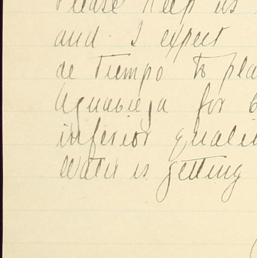 Please help us
and I expect
de Tiempo to pla
Aguavieja for
inferior quali
Water is getting